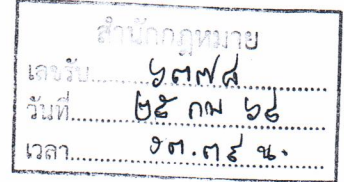 สำนักกฎหมาย
เลขรับ
วันที่ ๒๕ กพ ๖๘
เวลา ๑๓.๓๙ น.